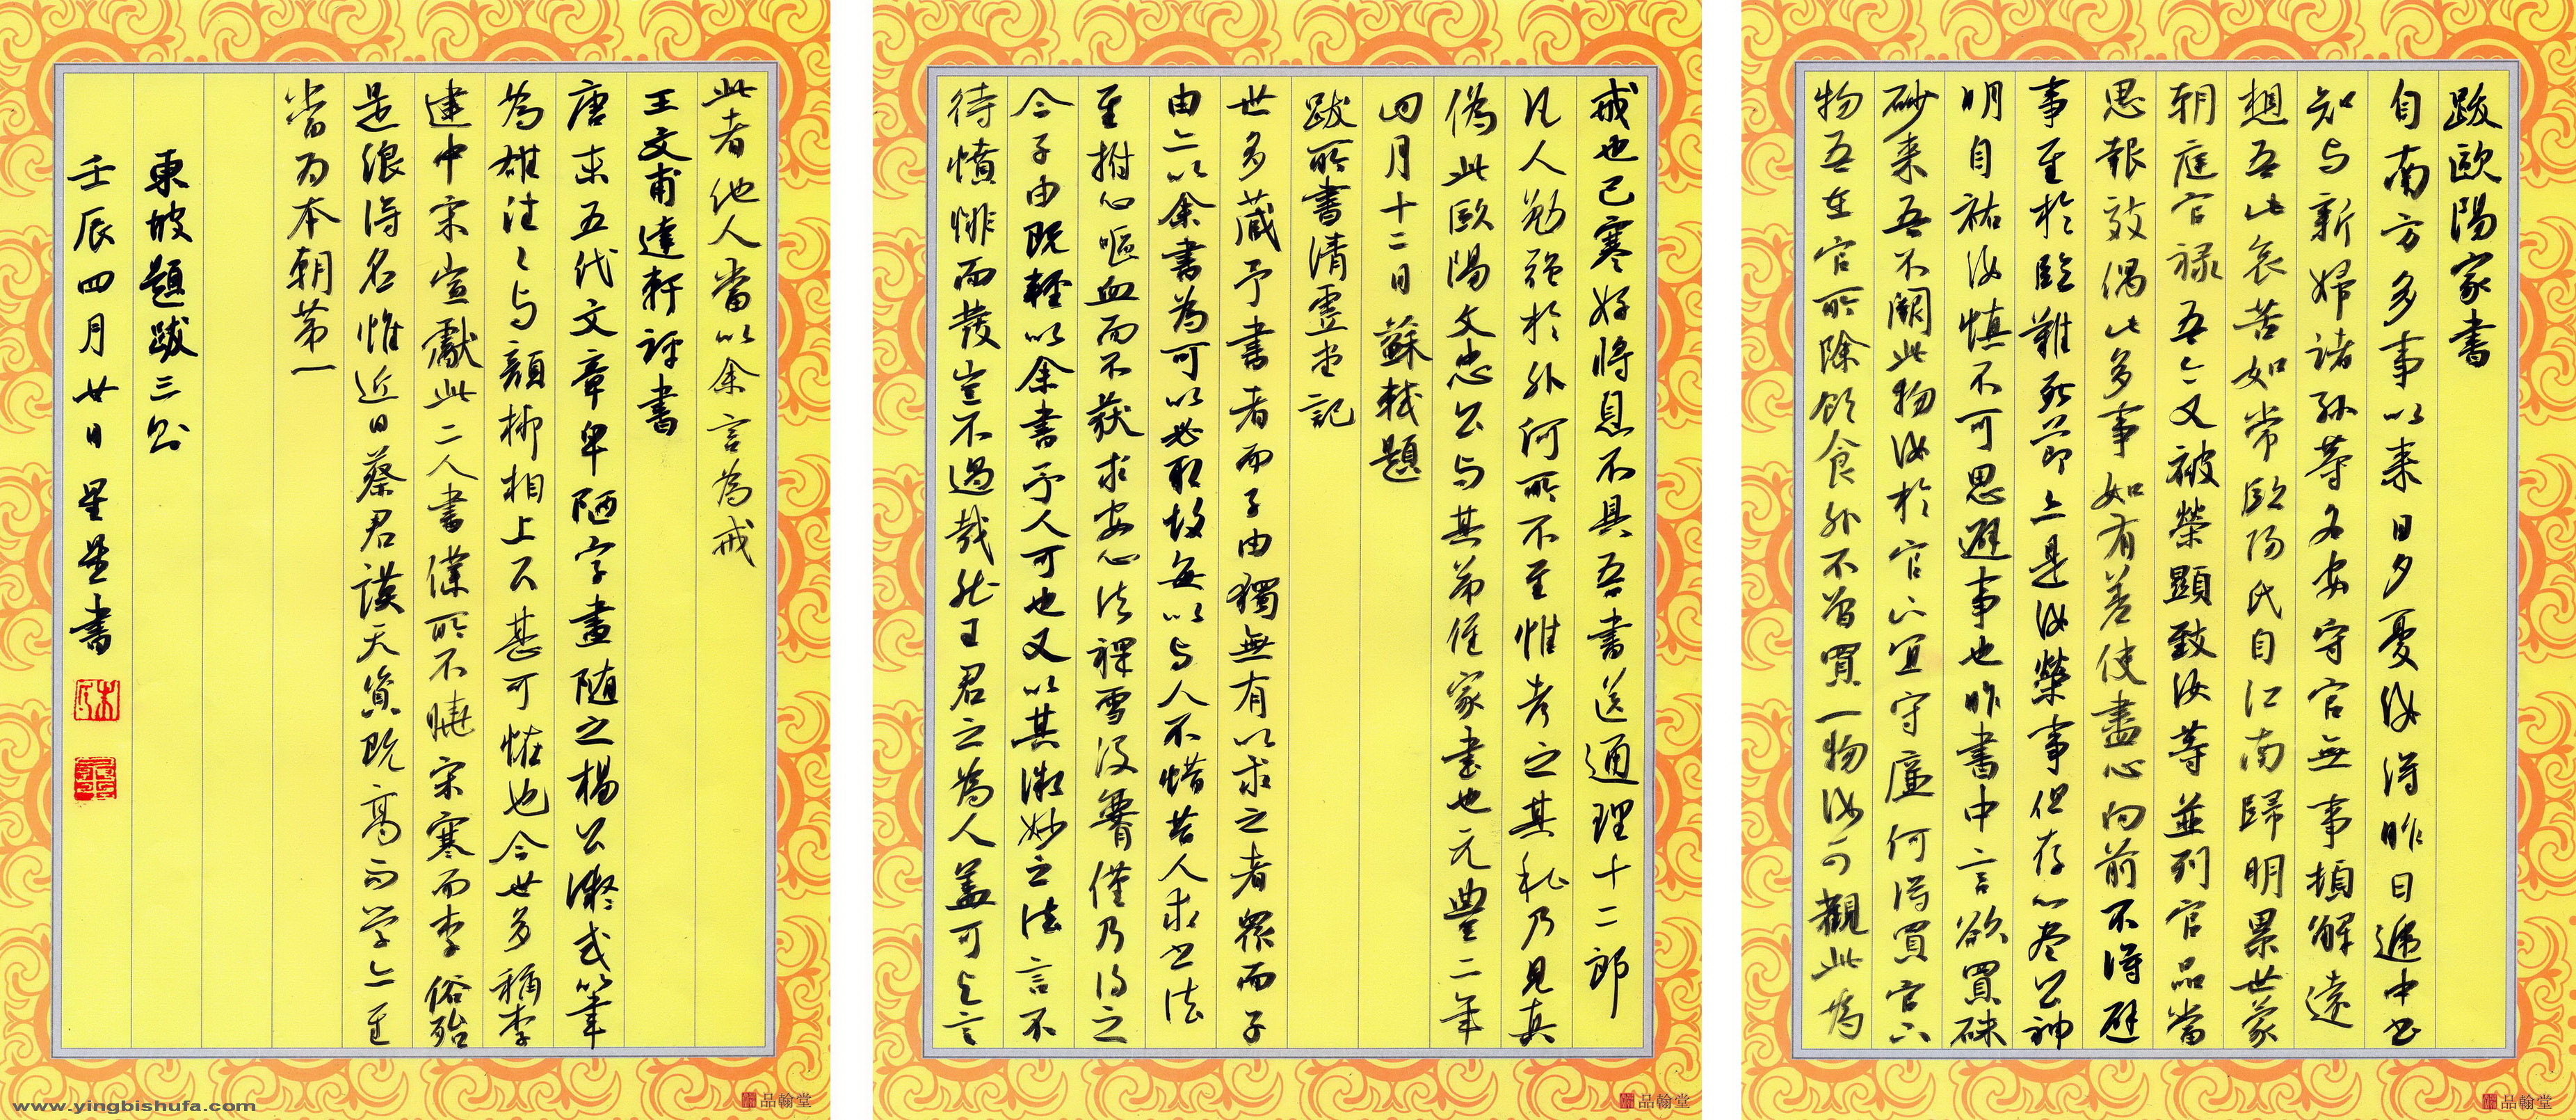 跋歐陽家書
自南方多事以来日夕憂汝得昨日遞中書
知与新婦諸孫等各安守官無事頓解遠
想吾此哀苦如常歐陽氏自江南歸明累世蒙
朝廷官禄吾今又被榮顯致汝等並列官品當
思報效偶此多事如有差使盡心向前不得避
事至於臨難死節亦是汝榮事但存心尽公神
明自祐汝慎不可思避事也昨書中言欲買硃
砂来吾不闕此物汝於官下宜守廉何得買官下
物吾在官所除飲食外不曾買一物汝可觀此為
戒也已寒好将息不具吾書送通理十二郎
凡人勉强於外何所不至惟考之其私乃見真
偽此歐陽文忠公与其弟侄家書也元豐二年
四月十二日蘇軾題
跋所書清虚堂記
世多蔵予書者而子由獨無有以求之者衆而子
由亦以余書為可以必取故每以与人不惜昔人求書法
至拊心嘔血而不获求安心法裸雪没膋僅乃得之
今子由既輕以余書予人可也又以其微妙之法言不
待憤悱而發豈不過哉然王君之為人蓋可与言
此者他人當以余言為戒
王文甫達軒評書
唐末五代文章卑陋字畫随之楊公凝式筆
為雄往往与顔柳相上下甚可怪也今世多稱李
建中宋宣獻此二人書僕所不曉宋寒而李俗殆
是浪得名惟近日蔡君謨天資既高而学亦至
當为本朝第一
東坡題跋三則
壬辰四月廿日星星書
www.yingbishufa.com
品翰堂
品翰堂
品翰堂